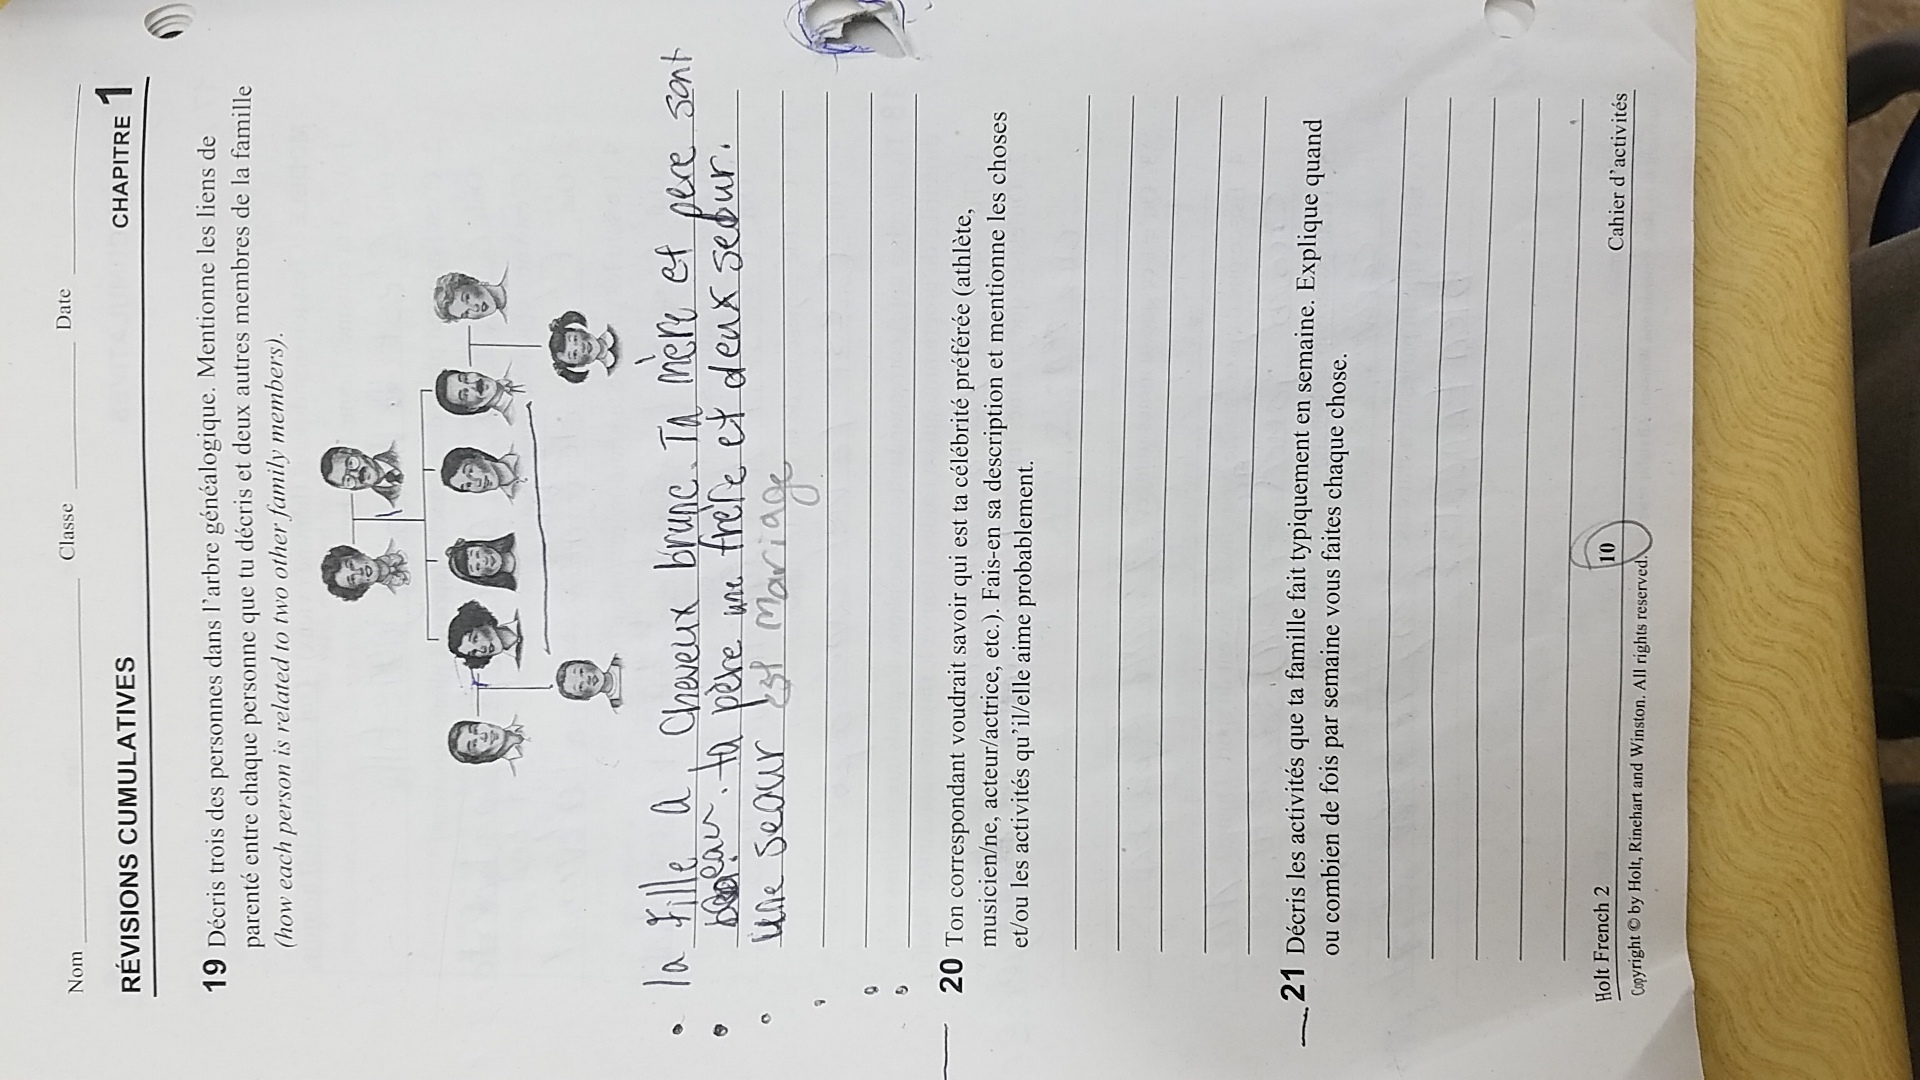 Nom Classe Date
RÉVISIONS CUMULATIVES CHAPITRE 1
19 Décris trois des personnes dans l'arbre généalogique. Mentionne les liens de
parenté entre chaque personne que tu décris et deux autres membres de la famille
(how each person is related to two other family members).
la Fille a cheveux brunc. Ta mère et pere sont
beau. ta père une frère et deux seour.
une seour est mariage
20 Ton correspondant voudrait savoir qui est ta célébrité préférée (athlète,
musicien/ne, acteur/actrice, etc.). Fais-en sa description et mentionne les choses
et/ou les activités qu'il/elle aime probablement.
21 Décris les activités que ta famille fait typiquement en semaine. Explique quand
ou combien de fois par semaine vous faites chaque chose.
Holt French 2 10 Cahier d'activités
Copyright © by Holt, Rinehart and Winston. All rights reserved.